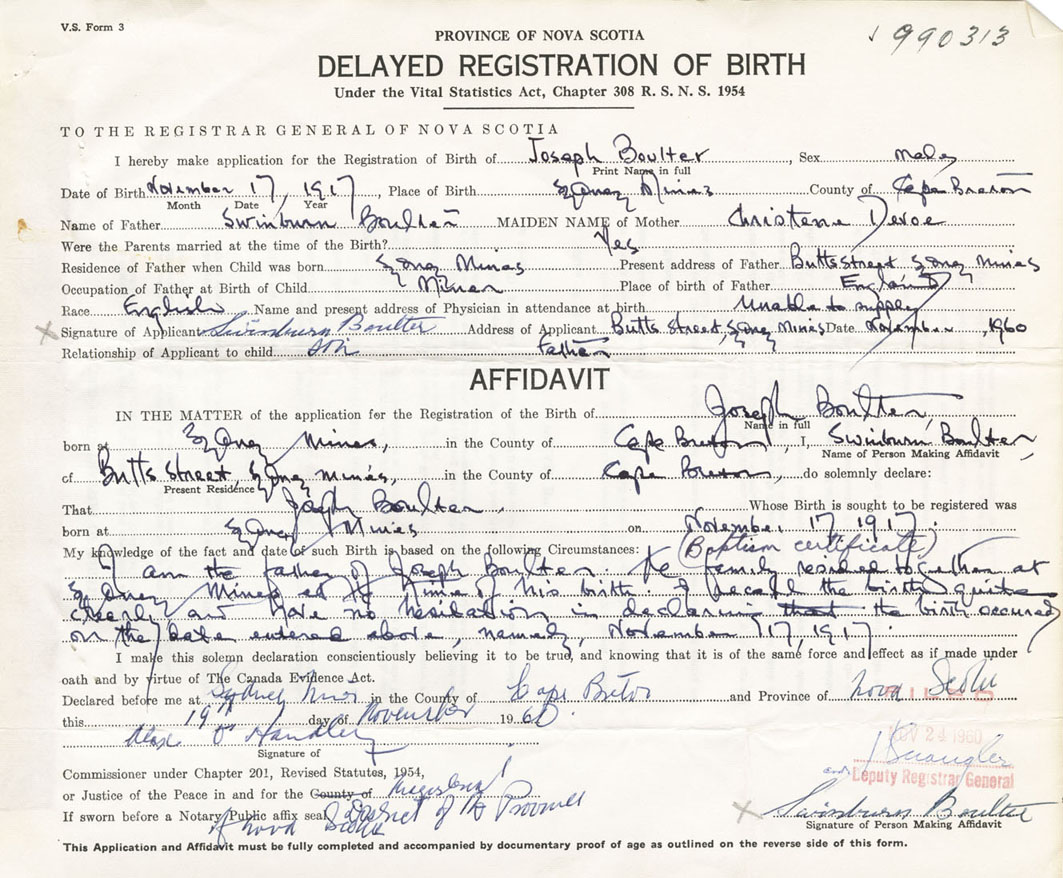 V.S. Form 3
990313
PROVINCE OF NOVA SCOTIA
DELAYED REGISTRATION OF BIRTH
Under the Vital Statistics Act, Chapter 308 R. S. N. S. 1954
TO THE REGISTRAR GENERAL OF NOVA SCOTIA
I hereby make application for the Registration of Birth of Joseph Boulter, Sex Male
Print Name in full
Date of Birth November 17, 1917, Place of Birth Sydney Mines County of Cape Breton
Month Date Year
Name of Father Swinburn Boulter MAIDEN NAME of Mother Christene Devoe
Were the Parents married at the time of the Birth? Yes
Residence of Father when Child was born Sydney Mines Present address of Father Butts Street Sydney Mines
Occupation of Father at Birth of Child Miner Place of birth of Father England
Race English Name and present address of Physician in attendance at birth Unable to supply
X Signature of Applicant Swinburn Boulter Address of Applicant Butts Street, Sydney Mines Date November, 1960
Relationship of Applicant to child son Father
AFFIDAVIT
IN THE MATTER of the application fer the Registration of the Birth of Joseph Boulter
Name in full
born at Sydney Mines, in the County of Cape Breton, I, Swinburn Boulter,
Name of Person Making Affidavit
of Butts Street, Sydney Mines, in the County of Cape Breton, do solemnly declare:
Present Residence
That Joseph Boulter Whose Birth is sought to be registered was
born at Sydney Mines on November 17 1917.
My knowledge of the fact and date of such Birth is based on the following Circumstances: (Baptism certificate)
I am the father of Joseph Boulter. The family resided together at
Sydney Mines at time of his birth. I recall the birth quite
clearly and have no hesitation in declaring that the birth occured
on the date entered above, namely, November 17, 1917.
I make this solemn declaration conscientiously believing it to be true, and knowing that it is of the same force and effect as if made under
oath and by virtue of The Canada Evidence Act.
Declared before me at Sydney Mines in the County of Cape Breton and Province of Nova Scotia
this 19th day of November 1960.
O'Handley
Signature of
NOV 24 1960
Commissioner under Chapter 201, Revised Statutes, 1954,
Deputy Registrar General
or Justice of the Peace in and for the County of
If sworn before a Notary Public affix seal District of the Province
of Nova Scotia
X Swinburn Boulter
Signature of Person Making Affidavit
This Application and Affidavit must be fully completed and accompanied by documentary proof of age as outlined on the reverse side of this form.